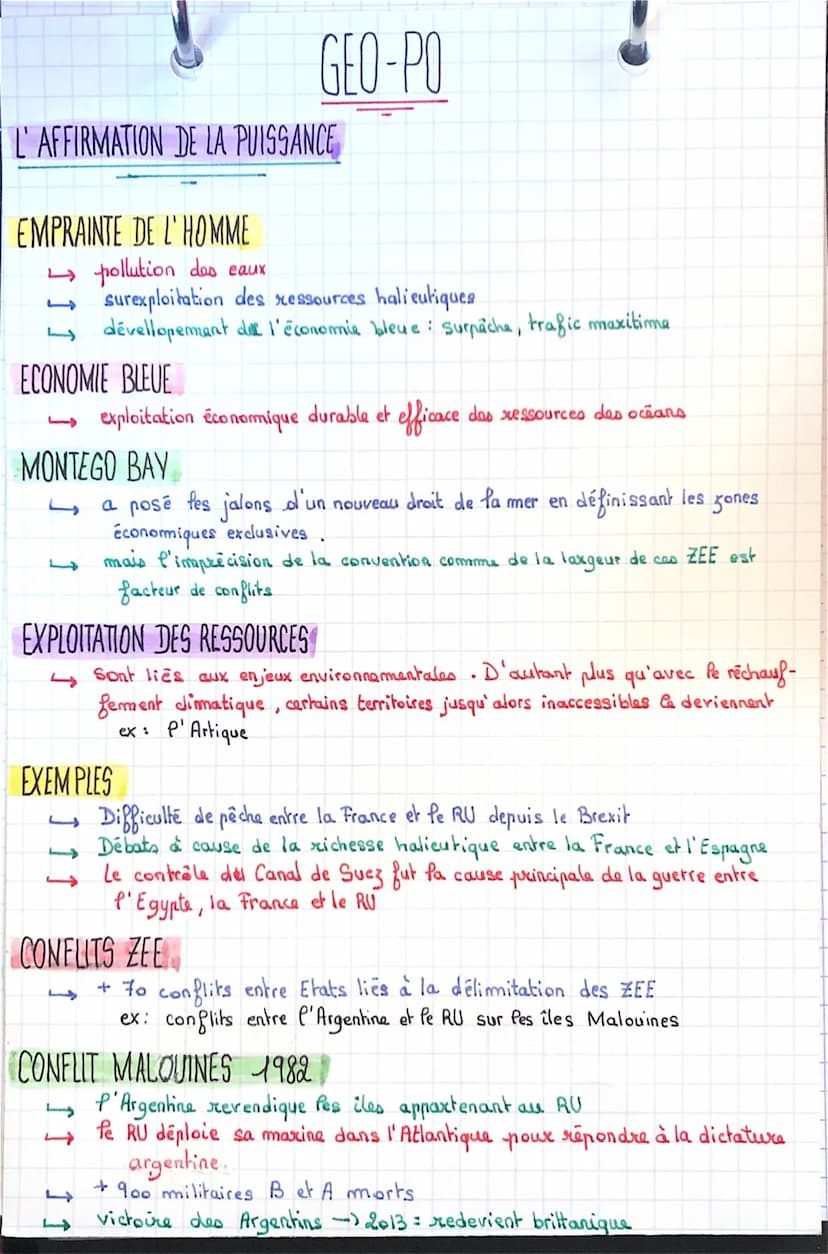 GEO-PO
L'AFFIRMATION DE LA PUISSANCE
EMPRAINTE DE L'HOMME
↳ pollution des eaux
↳ surexploitation des ressources halieutiques
↳ dévellopement de l'économie bleue : surpêche, trafic maritime
ECONOMIE BLEUE
↳ exploitation économique durable et efficace des ressources des océans
MONTEGO BAY
↳ a posé les jalons d'un nouveau droit de la mer en définissant les zones
économiques exclusives.
↳ mais l'imprécision de la convention comme de la largeur de ces ZEE est
facteur de conflits
EXPLOITATION DES RESSOURCES
↳ sont liés aux enjeux environnementales. D'autant plus qu'avec le réchauf-
fement climatique, certains territoires jusqu'alors inaccessibles le deviennent
ex : l'Artique
EXEMPLES
↳ Difficulté de pêche entre la France et le RU depuis le Brexit
↳ Débats à cause de la richesse halieutique entre la France et l'Espagne
↳ Le contrôle du Canal de Suez fut la cause principale de la guerre entre
l'Egypte, la France et le RU
CONFLITS ZEE
↳ + 70 conflits entre Etats liés à la délimitation des ZEE
ex : conflits entre l'Argentine et le RU sur les îles Malouines
CONFLIT MALOUINES 1982
↳ l'Argentine revendique les îles appartenant au RU
↳ le RU déploie sa marine dans l'Atlantique pour répondre à la dictature
argentine.
↳ + 900 militaires B et A morts
↳ victoire des Argentins → 2013 = redevient brittanique